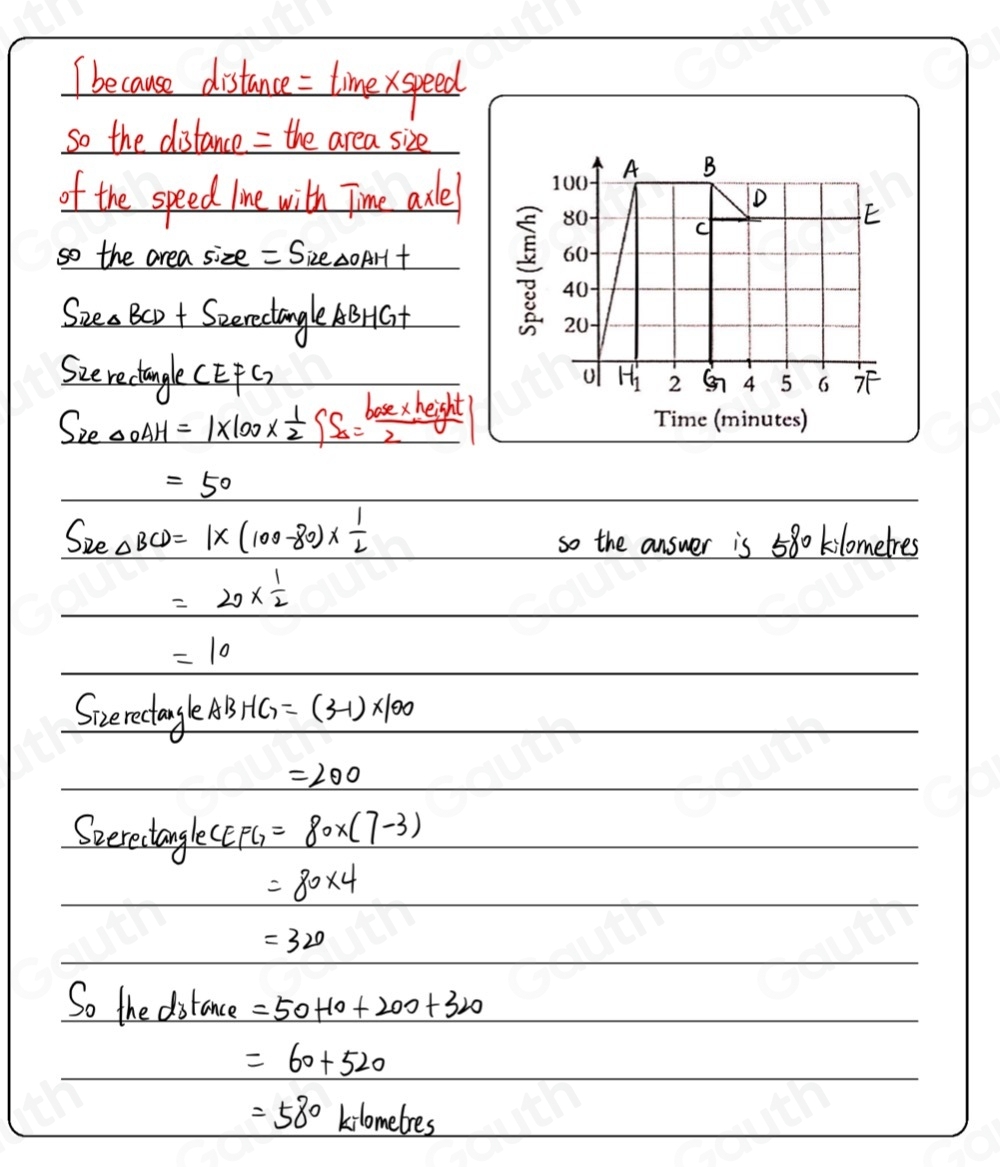 {because distance = time × speed
so the distance = the area size
of the speed line with Time axle}
so the area size = Size△OAH +
Size△BCD + Sizerectangle ABHG+
Size rectangle CEFG
Size △OAH = 1×100×1/2 {S△= base × height/2}
= 50
Size △BCD= 1×(100-80)×1/2
= 20×1/2
= 10
Size rectangle ABHG= (3-1)×100
=200
Size rectangle CEFG= 80×(7-3)
= 80×4
= 320
So the distance =50+10+200+320
= 60+520
= 580 kilometres
so the answer is 580 kilometres
Speed (km/h)
100
80
60
40
20
A B
D
C E
0 H 1 2 G 4 5 6 7 F
Time (minutes)
Gauth